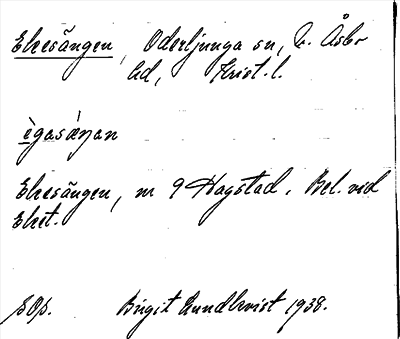 Ekesängen, Oderljunga sn, N. Åsbo
hd, Krist. l.
ègasæ̀ŋan
Ekesängen, nr 9 Hagstad. Bel. vid
Eket.
Birgit Lundkvist 1938.